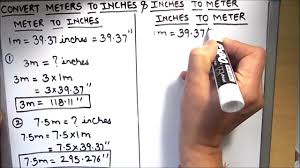 CONVERT METERS TO INCHES & INCHES TO METER
METER TO INCHES
1m = 39.37 inches = 39.37"
① 3m = ? inches
3m = 3 x 1m
= 3 x 39.37"
3m = 118.11"
② 7.5m = ? inches
7.5m = 7.5 x 1m
= 7.5 x 39.37"
7.5m = 295.276"
INCHES TO METER
1m = 39.37
EXPO